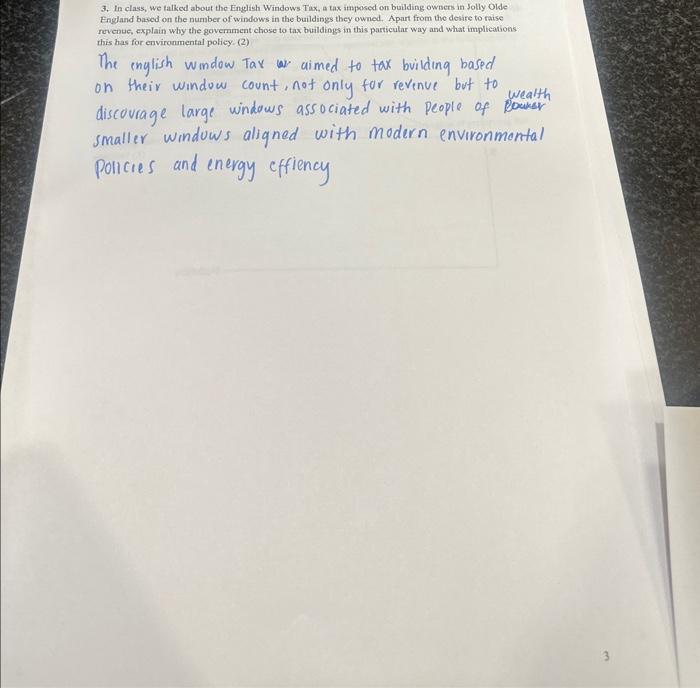 3. In class, we talked about the English Windows Tax, a tax imposed on building owners in Jolly Olde
England based on the number of windows in the buildings they owned. Apart from the desire to raise
revenue, explain why the government chose to tax buildings in this particular way and what implications
this has for environmental policy. (2)
The english window Tax w aimed to tax building based
on their window count, not only for revenue but to
discourage large windows associated with people of power wealth
smaller windows aligned with modern environmental
policies and energy effiency
3